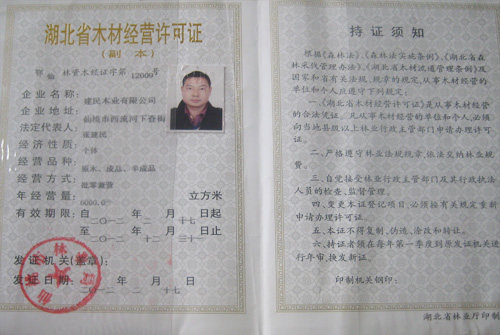 湖北省木材经营许可证
(副 本)
鄂 仙 林资木经证字第 12009 号
企业名称: 建民木业有限公司
企业地址: 仙桃市西流河下查街
法定代表人:
经济性质: 个体
经营品种: 原木、成品、半成品
经营方式: 批零兼营
年经营量: 立方米
有效期限: 自二〇一二年二月十七日起
至二〇一二年十二月三十一日止
发证机关(盖章):
发证日期: 二〇一二年二月十七日
持证须知
根据《森林法》、《森林法实施条例》、《湖北省森
林采伐管理办法》、《湖北省木材流通管理条例》及
国家和省有关法规、规章的规定,从事木材经营的
单位和个人应遵守下列规定:
一、《湖北省木材经营许可证》是从事木材经营
的合法凭证。凡从事木材经营的单位和个人,必须
向当地县级以上林业行政主管部门申请办理许可
证。
二、严格遵守林业法规规章,依法交纳林业规
费。
三、自觉接受林业行政主管部门及其行政执法
人员的检查、监督管理。
四、变更本证登记项目,必须按有关规定重新
申请办理许可证。
五、本证不得复制、伪造、涂改和转让。
六、持证者须在每年第一季度到原发证机关进
行年审,换发新证。
印制机关钢印:
湖北省林业厅印制